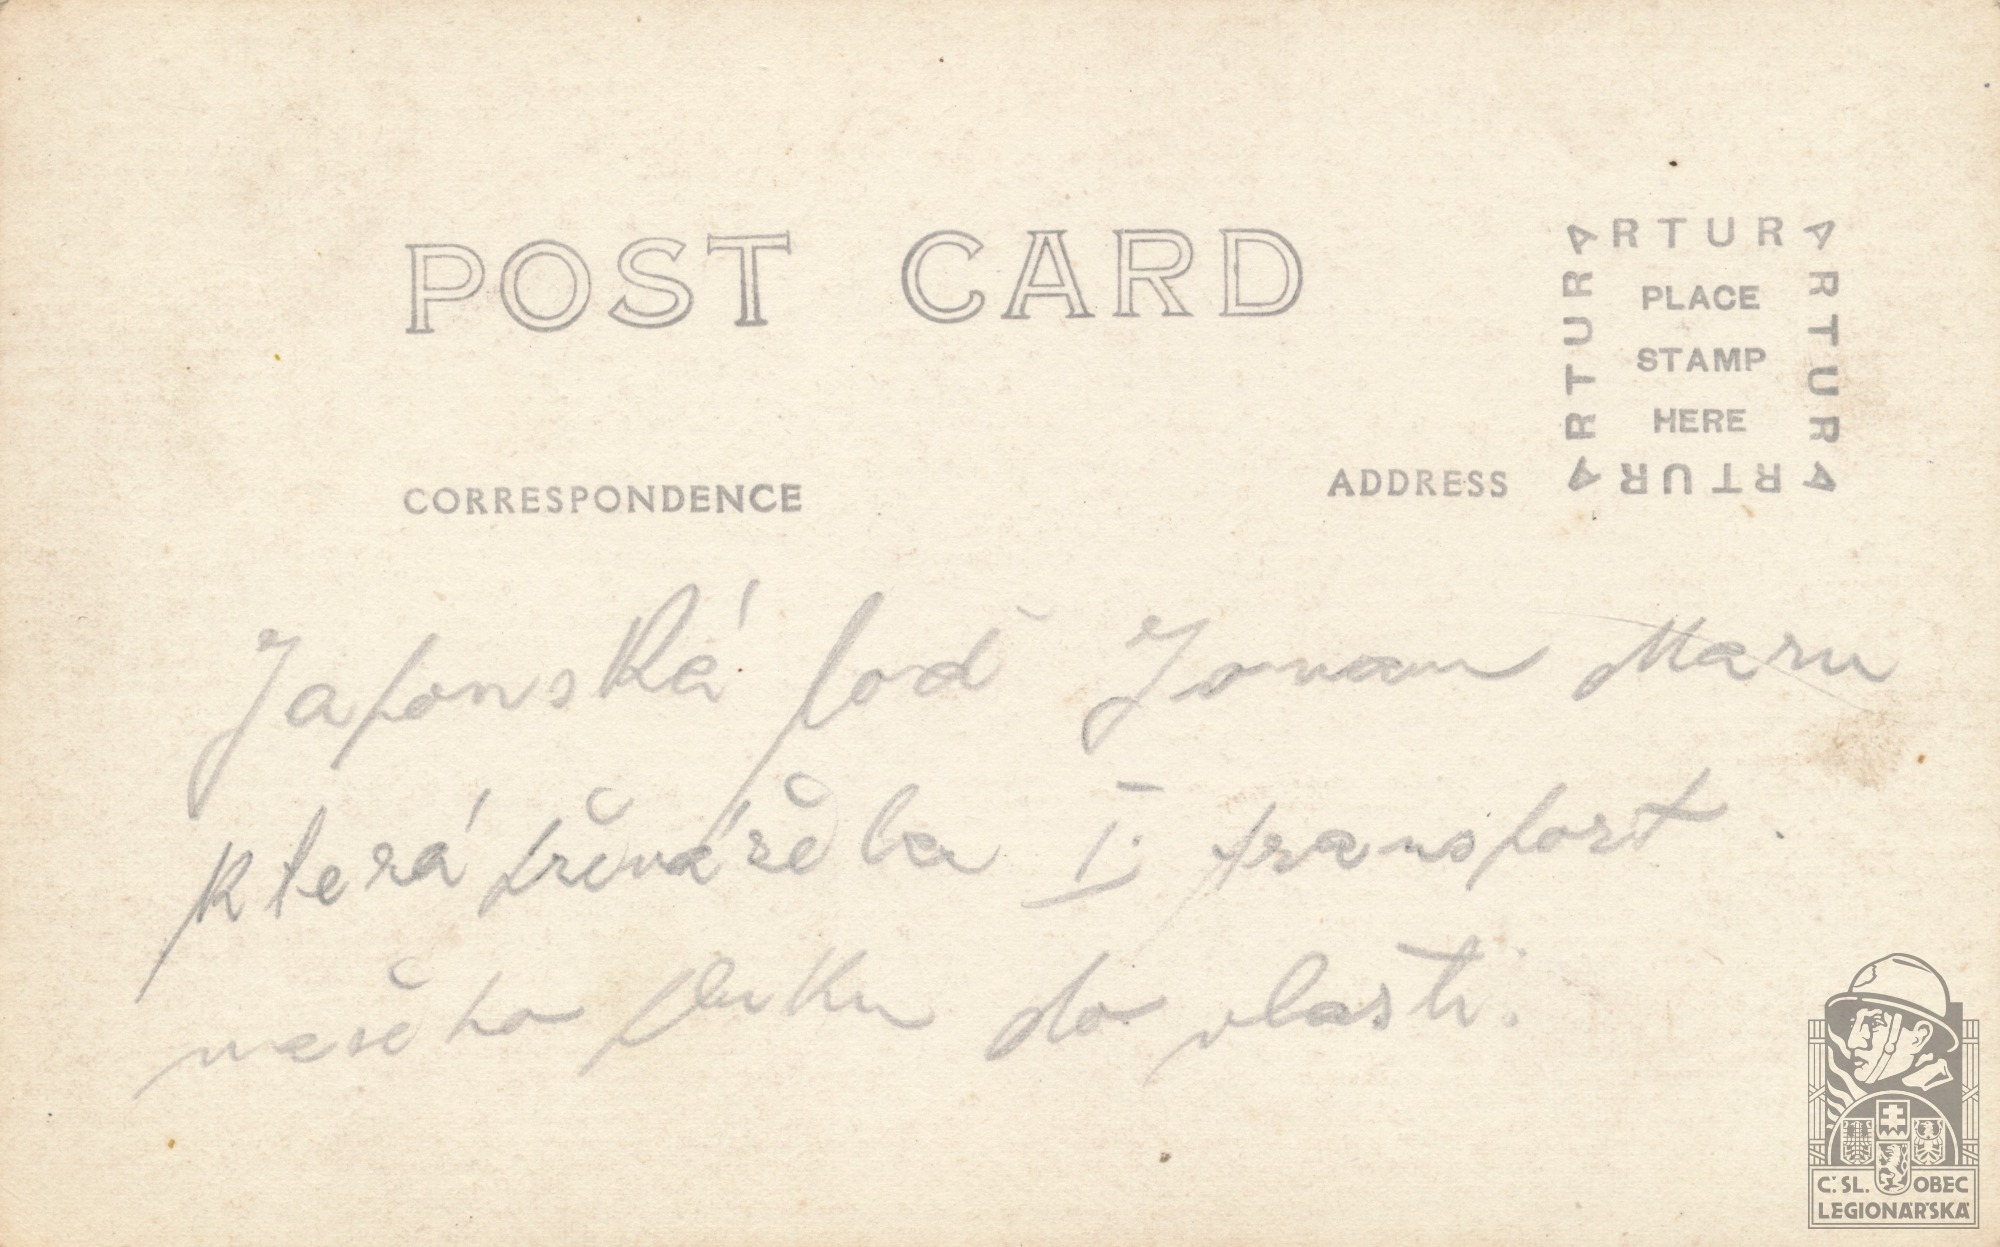 POST CARD
ARTUR
ARTUR
ARTUR
ARTUR
PLACE
STAMP
HERE
CORRESPONDENCE
ADDRESS
Japonská loď Maru
která převážela I. transport
našeho pluku do vlasti.
Č. SL. OBEC
LEGIONÁŘSKÁ